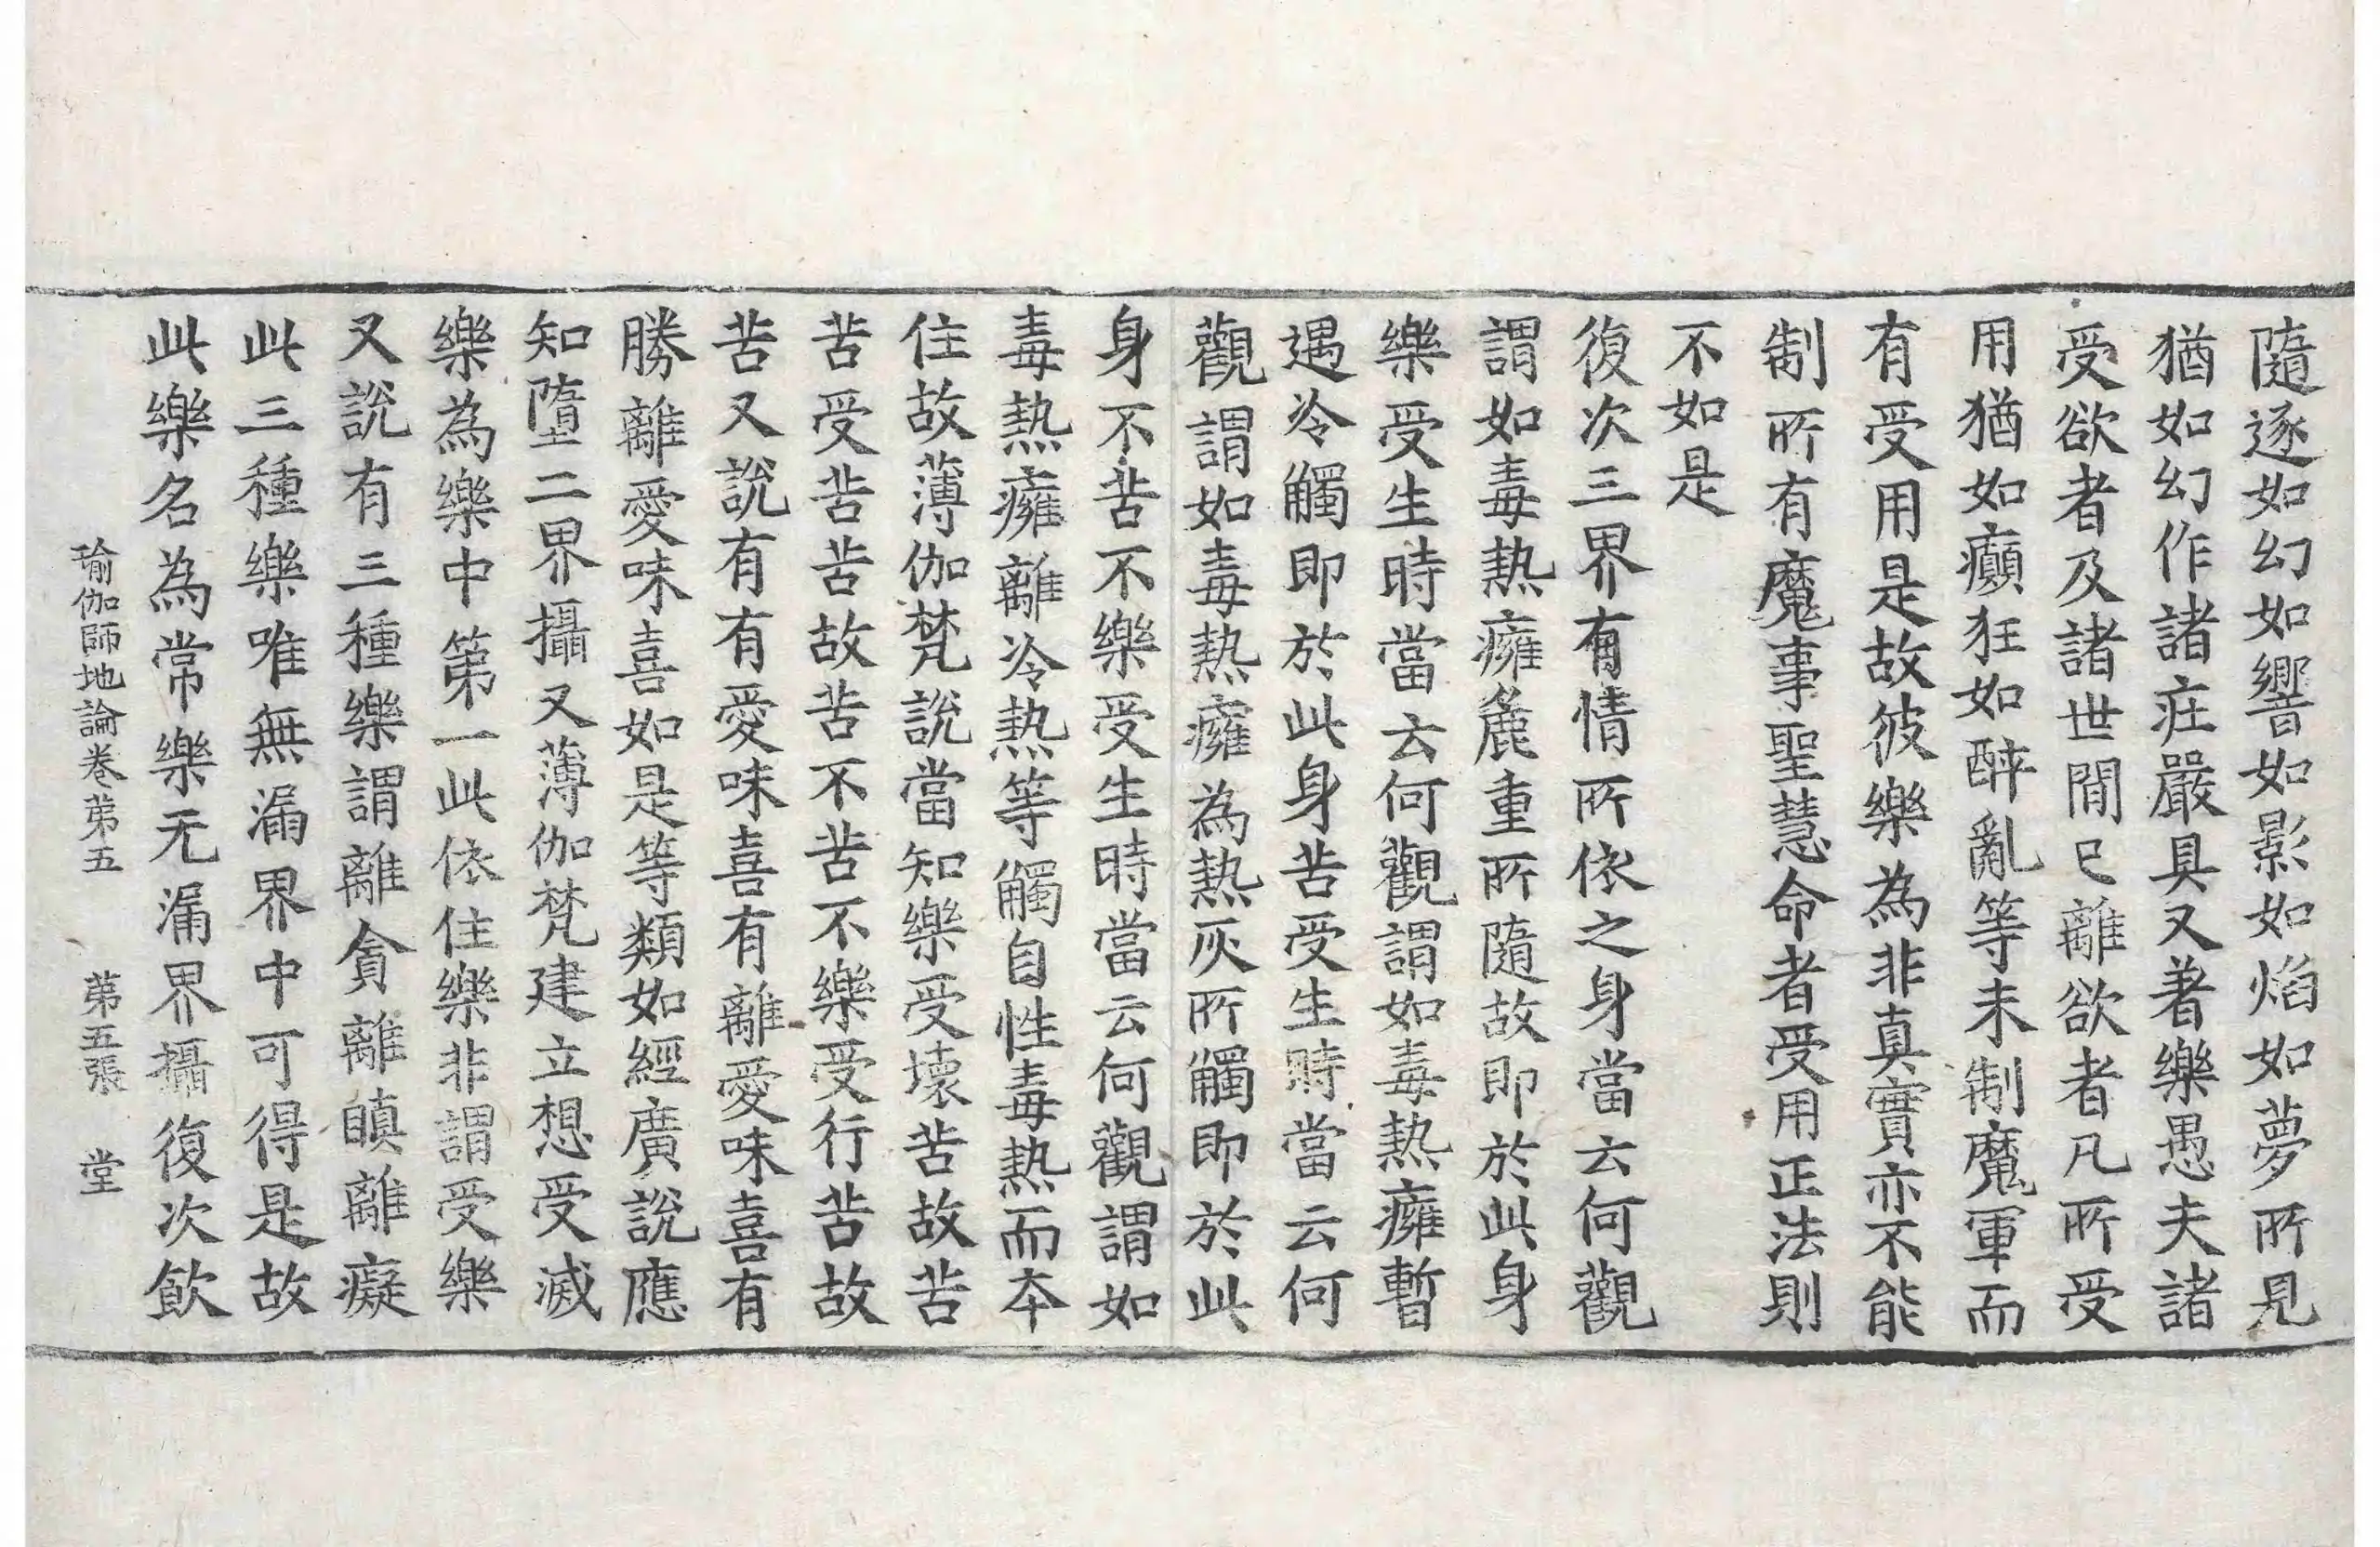 隨逐如幻如響如影如焰如夢所見
猶如幻作諸庄嚴具又著樂愚夫諸
受欲者及諸世閒已離欲者凡所受
用猶如癲狂如醉亂等未制魔軍而
有受用是故彼樂為非真實亦不能
制所有魔事聖慧命者受用正法則
不如是
復次三界有情所依之身當云何觀
謂如毒熱癰麁重所隨故即於此身
樂受生時當云何觀謂如毒熱癰暫
遇冷觸即於此身苦受生時當云何
觀謂如毒熱癰為熱灰所觸即於此
身不苦不樂受生時當云何觀謂如
毒熱癰離冷熱等觸自性毒熱而本
住故薄伽梵說當知樂受壞苦故苦
苦受苦苦故苦不苦不樂受行苦故
苦又說有有愛味喜有離愛味喜有
勝離愛味喜如是等類如經廣說應
知墮二界攝又薄伽梵建立想受滅
樂為樂中第一此依住樂非謂受樂
又說有三種樂謂離貪離瞋離癡
此三種樂唯無漏界中可得是故
此樂名為常樂无漏界攝復次飲
瑜伽師地論卷第五 第五張 堂